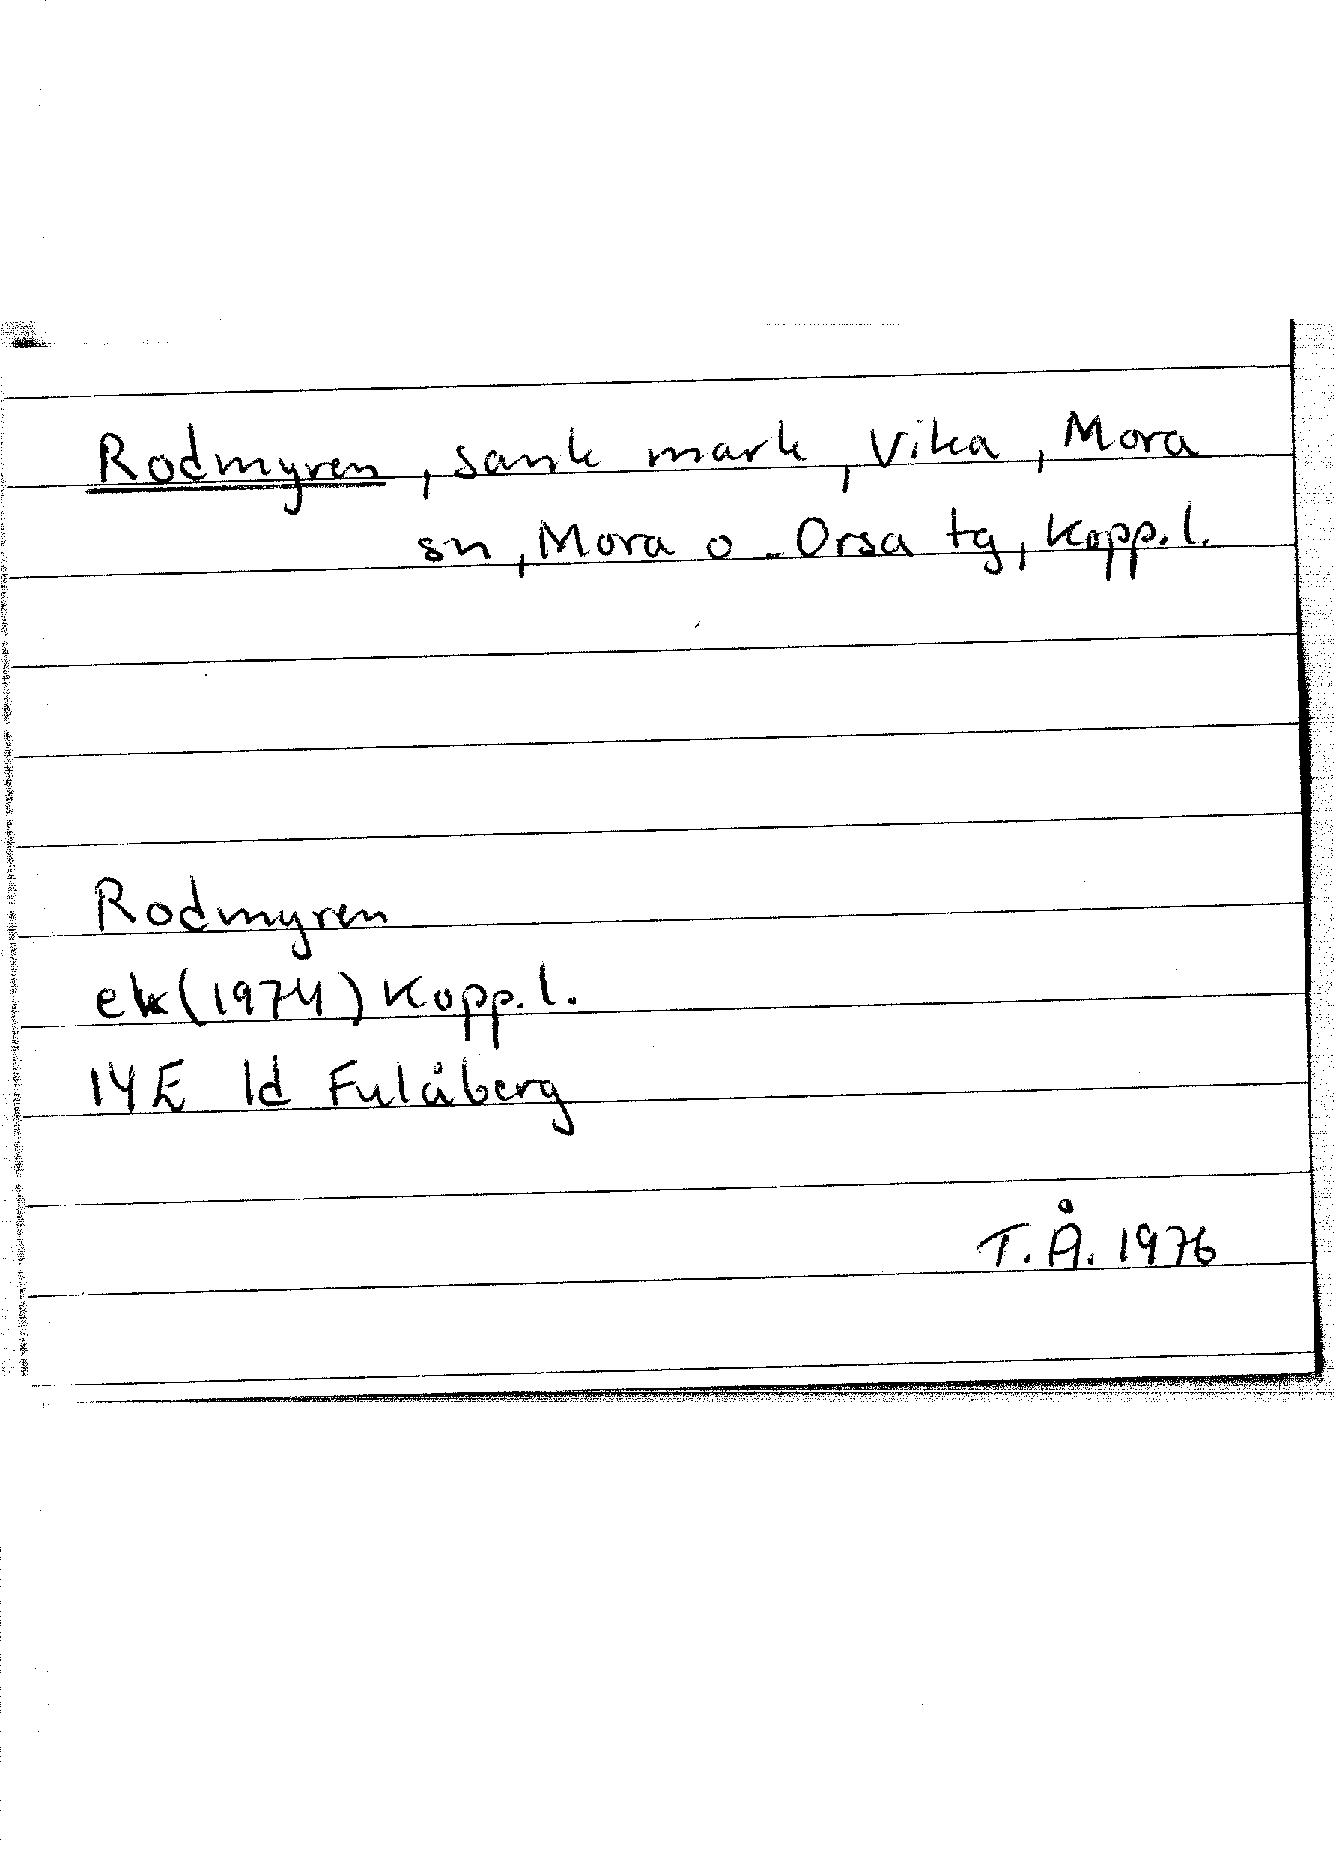 Rodmyren, sank mark, Vika, Mora
sn, Mora o. Orsa tg, Kopp. l.
Rodmyren
ek (1974) Kopp. l.
14E 1d Fulåberg
T. Å. 1976